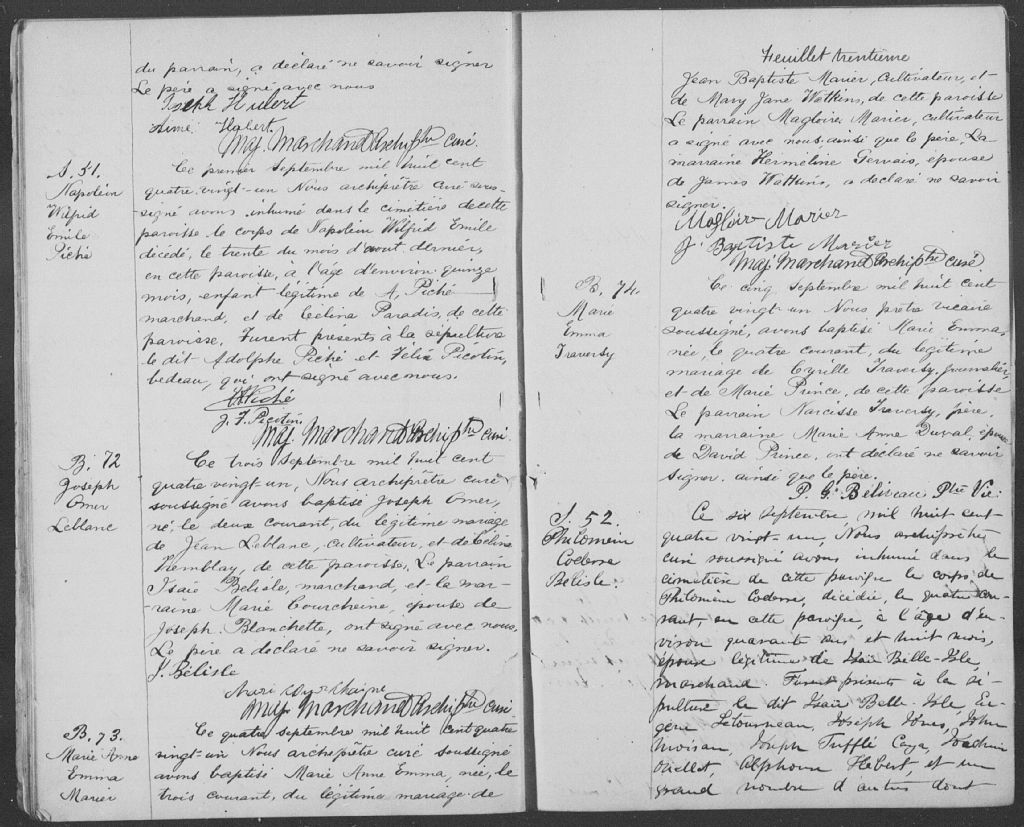 du parrain, a déclaré ne savoir signer
Le père a signé avec nous
Joseph Hubert
Aimé Hebert.
Maj. Marchand Archiptre curé.
S. 51.
Napoléon
Wilfrid
Emile
Piché
Ce premier Septembre mil huit cent
quatre-vingt-un Nous archiprêtre curé sous-
signé avons inhumé dans le cimetière de cette
paroisse le corps de Napoléon Wilfrid Emile
décédé, le trente du mois d'aout dernier,
en cette paroisse, a l'age d'environ quinze
mois, enfant légitime de A, Piché
marchand, et de Célina Paradis, de cette
paroisse, Furent présents à la sépulture
le dit Adolphe Piché et Félix Picotin,
bedeau, qui ont signé avec nous.
A Piché
J. F. Picotin
Maj. Marchand Archiptre curé.
B. 72
Joseph
Omer
Leblanc
Ce trois Septembre mil huit cent
quatre vingt-un, Nous archiprêtre curé
soussigné avons baptisé Joseph Omer,
né, le deux courant, du légitime mariage
de Jean Leblanc, cultivateur, et de Celina
Tremblay, de cette paroisse, Le parrain
Isaïe Belisle, marchand, et la mar-
raine Marie Courcheine, épouse de
Joseph Blanchette, ont signé avec nous,
Le père a déclaré ne savoir signer.
I. Bélisle
Marie Courchaine
Maj. Marchand Archiptre curé
B. 73.
Marie Anne
Emma
Marier
Ce quatre septembre mil huit cent quatre
vingt-un Nous archeprêtre curé soussigné
avons baptisé Marie Anne Emma, née, le
trois courant, du légitime mariage de
Feuillet trentième
Jean Baptiste Marier, Cultivateur, et
de Mary Jane Watkins, de cette paroisse
Le parrain Magloire Marier, cultivateur
a signé avec nous, ainsi que le père, La
marraine Hermeline Gervais, epouse
de James Watkins, a declaré ne savoir
signer.
Magloir Marier
J. Baptiste Marier
Maj Marchand Archiptre curé.
B. 74.
Marie
Emma
Traversy
Ce cinq septembre mil huit cent
quatre vingt-un Nous prêtre vicaire
soussigné, avons baptisé Marie Emma,
née, le quatre courant, du légitime
mariage de Cyrille Traversy, journalier,
et de Marie Prince, de cette paroisse
Le parrain Narcisse Traversy, père,
la marraine Marie Anne Duval, épouse
de David Prince, ont déclaré ne savoir
signer, ainsi que le père.
P. G. Béliveau Ptre Vic.
S. 52.
Philomèn
Coderre
Belisle.
Ce six septembre, mil huit cent
quatre vingt-un, Nous archiprêtre
curé soussigné avons inhumé dans le
cimetière de cette paroisse le corps de
Philomène Coderre, décédée, le quatre cou-
rant en cette paroisse, à l'âge d'en-
viron quarante ans et huit mois,
épouse légitime de Isaïe Belle-Isle,
marchand. Furent présents à la sé-
pulture le dit Isaïe Belle-Isle, Eu-
gène Letourneau, Joseph Jones, John
Moisan, Joseph Tufflé Caya, Joachim
Ouellet, Alphonse Hébert, et un
grand nombre d'autres dont